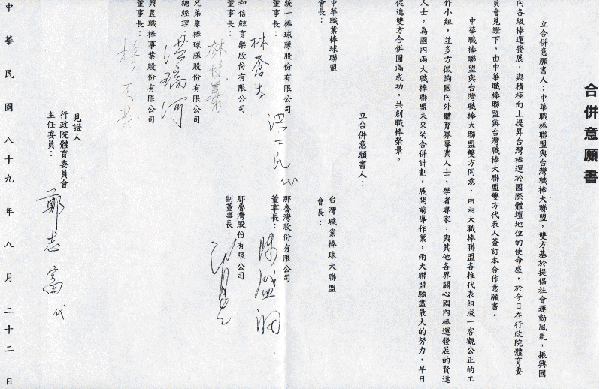 合併意願書
立合併意願書人:中華職棒聯盟與台灣職棒大聯盟,雙方基於提倡社會運動風氣,振興國
內各級棒運發展,與積極向上提昇台灣棒運於國際體壇地位的使命感,於今日在行政院體育委
員會見證下,由中華職棒聯盟與台灣職棒大聯盟雙方代表人簽訂本合作意願書。
中華職棒聯盟與台灣職棒大聯盟雙方同意,由兩大職棒聯盟各推代表組成一客觀公正的工
作小組,並多方徵詢國內外體育界專責人士、學者專家,與其他各界關心國內棒運發展的賢達
人士,為國內兩大職棒聯盟未來的合併計劃,展開前導作業,兩大聯盟願盡最大的努力,早日
促進雙方合併圓滿成功,共創職棒榮景。
立合併意願書人:
中華職業棒球聯盟
會長:
台灣職業棒球大聯盟
會長:
統一棒球隊股份有限公司
董事長:林蒼生
和信育樂股份有限公司
董事長:
兄弟象棒球隊股份有限公司
總經理:洪瑞河
興農職棒事業股份有限公司
董事長:楊天發
那魯灣股份有限公司
董事長:陳盛沺
那魯灣股份有限公司
副董事長:
見證人
行政院體育委員會
主任委員:
鄭志富代
中華民國八十九年九月二十二日